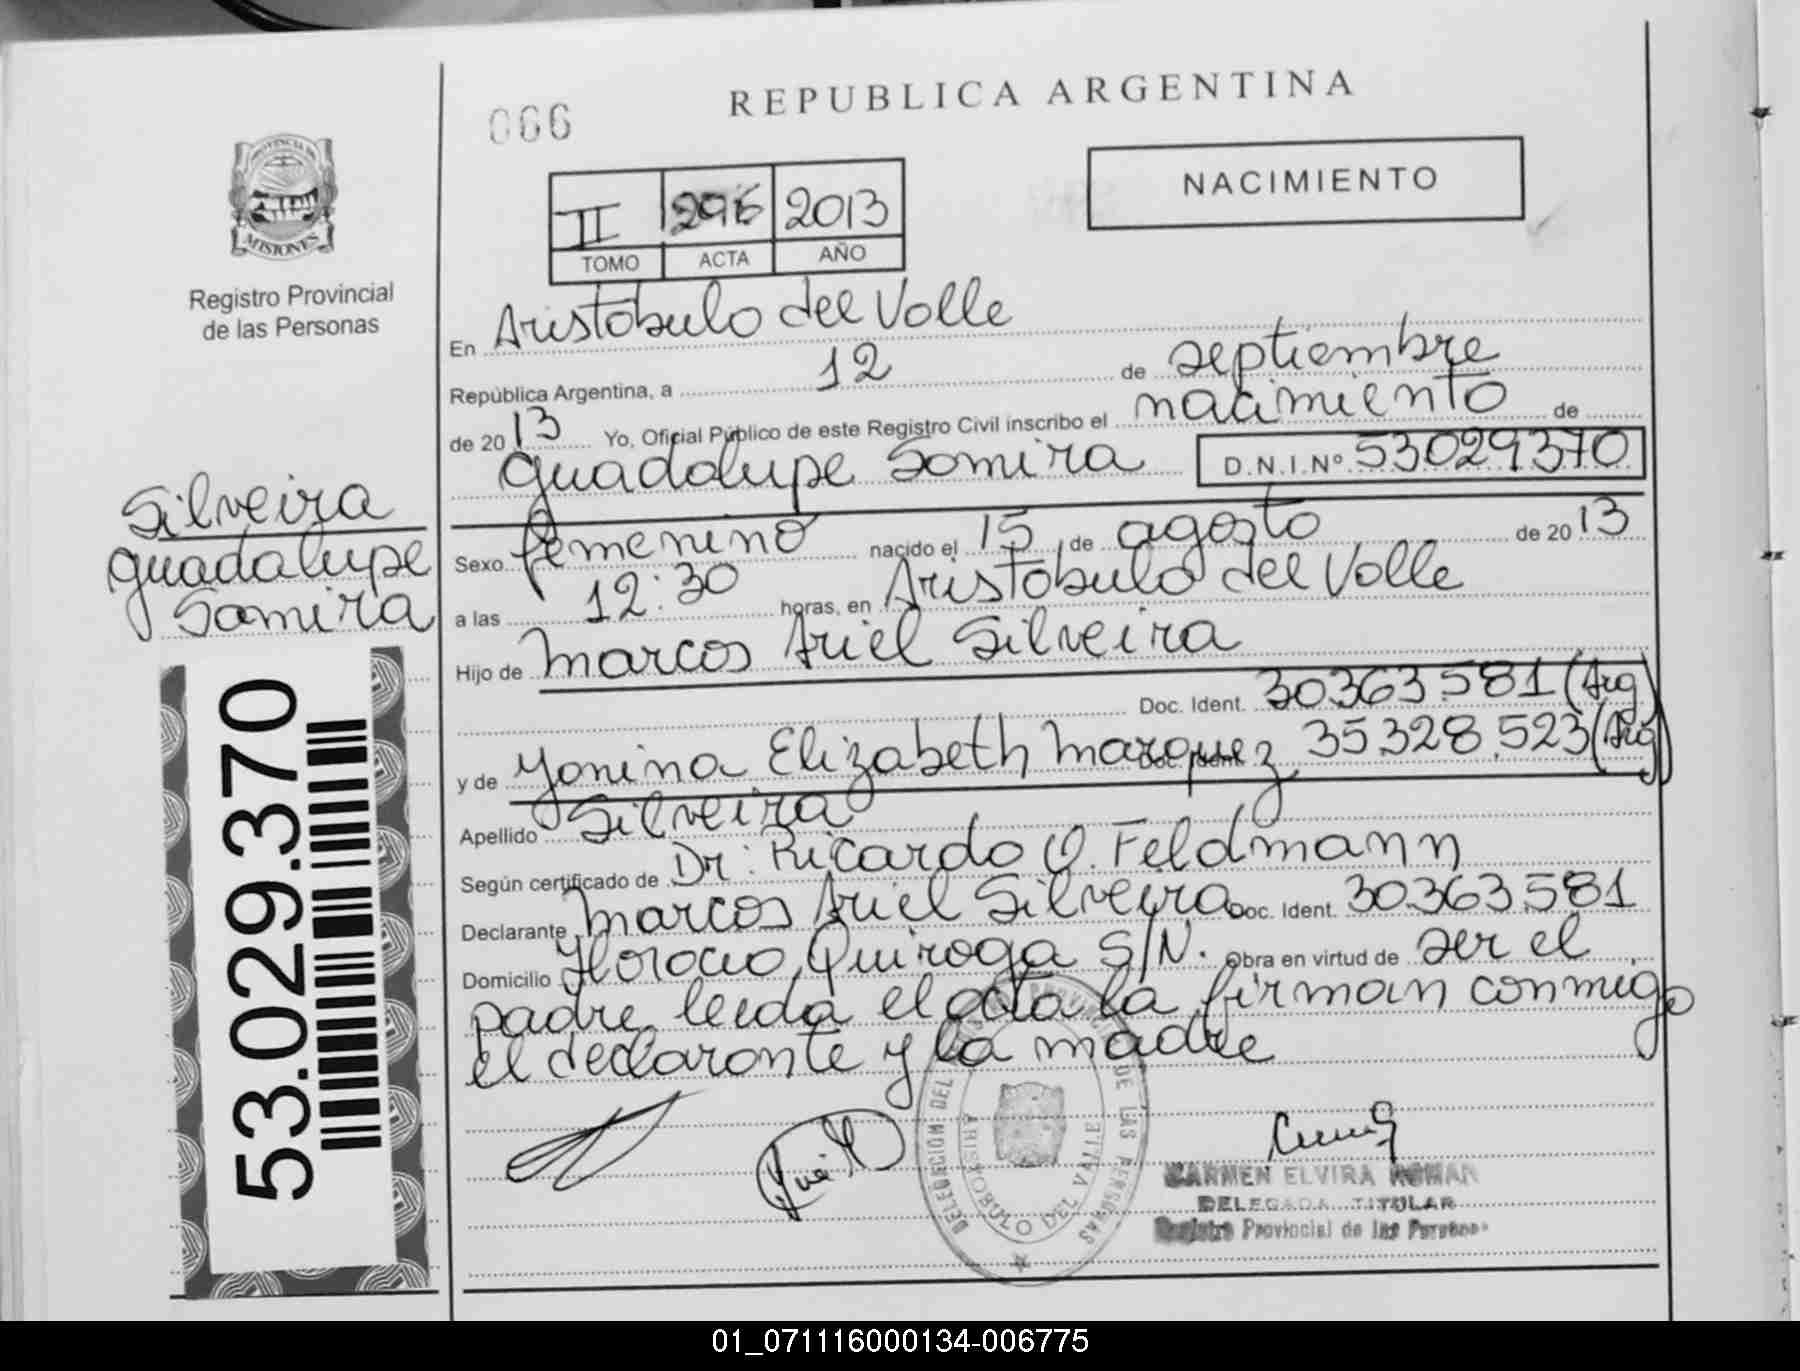 066
REPUBLICA ARGENTINA
NACIMIENTO
II 296 2013
TOMO ACTA AÑO
PROVINCIA DE
MISIONES
Registro Provincial
de las Personas
Silveira
Guadalupe
Samira
53.029.370
En Aristobulo del Valle
República Argentina, a 12 de septiembre
de 2013 Yo, Oficial Público de este Registro Civil inscribo el nacimiento de
Guadalupe Samira D.N.I.Nº 53029370
Sexo femenino nacido el 15 de agosto de 2013
a las 12:30 horas, en Aristobulo del Valle
Hijo de Marcos Ariel Silveira
Doc. Ident. 30.363.581 (Arg)
y de Yanina Elizabeth Marquez Doc. Ident. 35.328.523 (Arg)
Apellido Silveira
Según certificado de Dr: Ricardo O. Feldmann
Declarante Marcos Ariel Silveira Doc. Ident. 30.363.581
Domicilio Horacio Quiroga S/N. Obra en virtud de ser el
padre leida el acta la firman conmigo
el declarante y la madre
DELEGACION DEL REGISTRO PROVINCIAL DE LAS PERSONAS
ARISTOBULO DEL VALLE
CARMEN ELVIRA ROMAN
DELEGADA TITULAR
Registro Provincial de las Personas
01_071116000134-006775